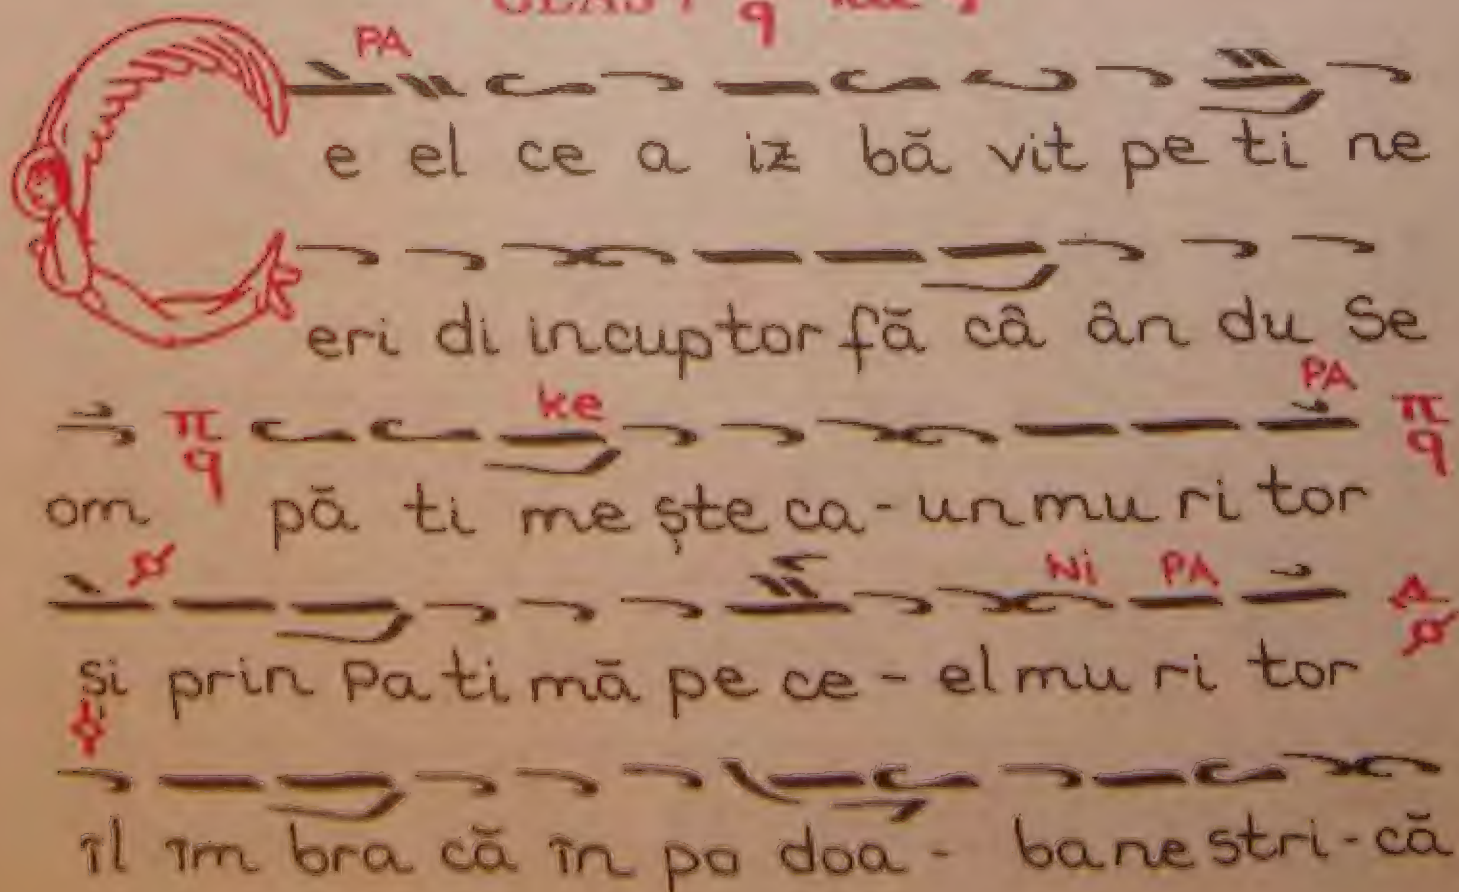 GLAS I
PA
C e el ce a iz bă vit pe ti ne
eri di in cup tor fă câ ân du Se
ke PA
om π q pă ti me ște ca - un mu ri tor π q
Ni PA
și prin Pa ti mă pe ce - el mu ri tor
îl îm bra că în po doa - ba ne stri - că